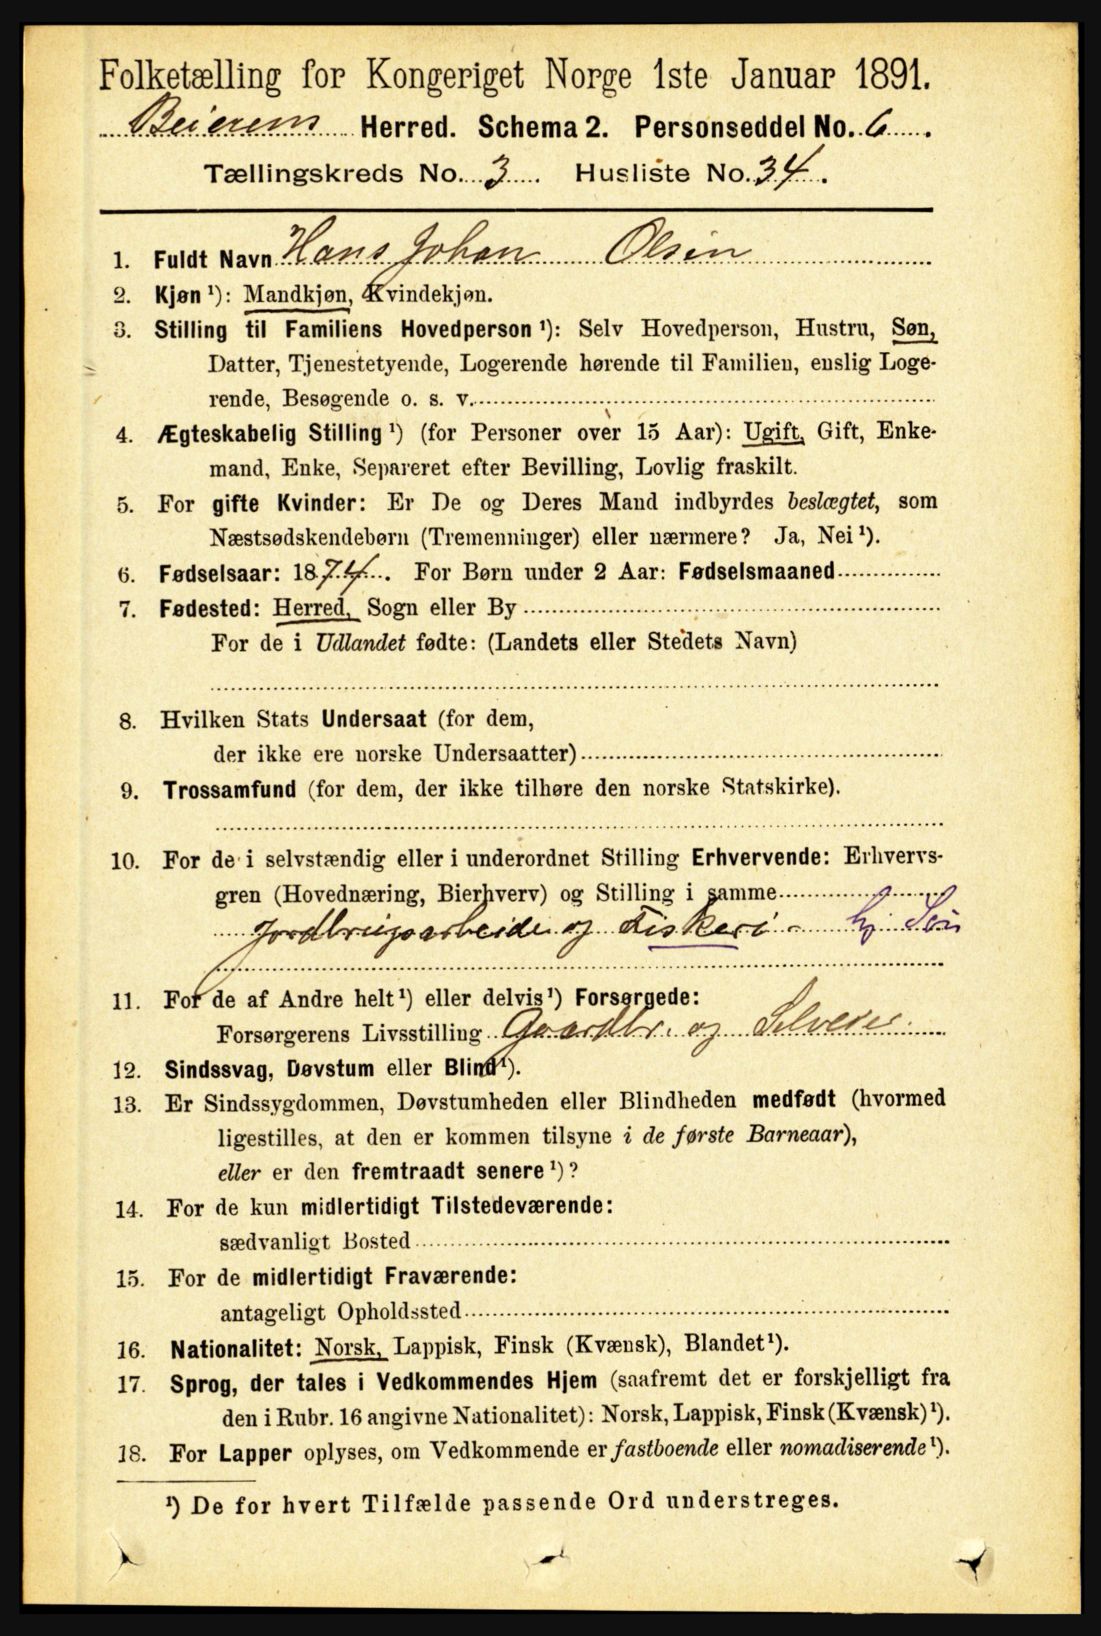 Folketælling for Kongeriget Norge 1ste Januar 1891.
Beierens Herred. Schema 2. Personseddel No. 6.
Tællingskreds No. 3. Husliste No. 34.
1. Fuldt Navn Hans Johan Olsen
2. Kjøn ¹): Mandkjøn, Kvindekjøn.
3. Stilling til Familiens Hovedperson ¹): Selv Hovedperson, Hustru, Søn,
Datter, Tjenestetyende, Logerende hørende til Familien, enslig Loge-
rende, Besøgende o. s. v.
4. Ægteskabelig Stilling ¹) (for Personer over 15 Aar): Ugift, Gift, Enke-
mand, Enke, Separeret efter Bevilling, Lovlig fraskilt.
5. For gifte Kvinder: Er De og Deres Mand indbyrdes beslægtet, som
Næstsødskendebørn (Tremenninger) eller nærmere? Ja, Nei ¹).
6. Fødselsaar: 1874. For Børn under 2 Aar: Fødselsmaaned
7. Fødested: Herred, Sogn eller By
For de i Udlandet fødte: (Landets eller Stedets Navn)
8. Hvilken Stats Undersaat (for dem,
der ikke ere norske Undersaatter)
9. Trossamfund (for dem, der ikke tilhøre den norske Statskirke).
10. For de i selvstændig eller i underordnet Stilling Erhvervende: Erhvervs-
gren (Hovednæring, Bierhverv) og Stilling i samme
Jordbrugsarbeide og Fiskeri - hj. Søn
11. For de af Andre helt ¹) eller delvis ¹) Forsørgede:
Forsørgerens Livsstilling Gaardbr. og Selveier.
12. Sindssvag, Døvstum eller Blind ¹).
13. Er Sindssygdommen, Døvstumheden eller Blindheden medfødt (hvormed
ligestilles, at den er kommen tilsyne i de første Barneaar),
eller er den fremtraadt senere ¹)?
14. For de kun midlertidigt Tilstedeværende:
sædvanligt Bosted
15. For de midlertidigt Fraværende:
antageligt Opholdssted
16. Nationalitet: Norsk, Lappisk, Finsk (Kvænsk), Blandet ¹).
17. Sprog, der tales i Vedkommendes Hjem (saafremt det er forskjelligt fra
den i Rubr. 16 angivne Nationalitet): Norsk, Lappisk, Finsk (Kvænsk) ¹).
18. For Lapper oplyses, om Vedkommende er fastboende eller nomadiserende ¹).
¹) De for hvert Tilfælde passende Ord understreges.